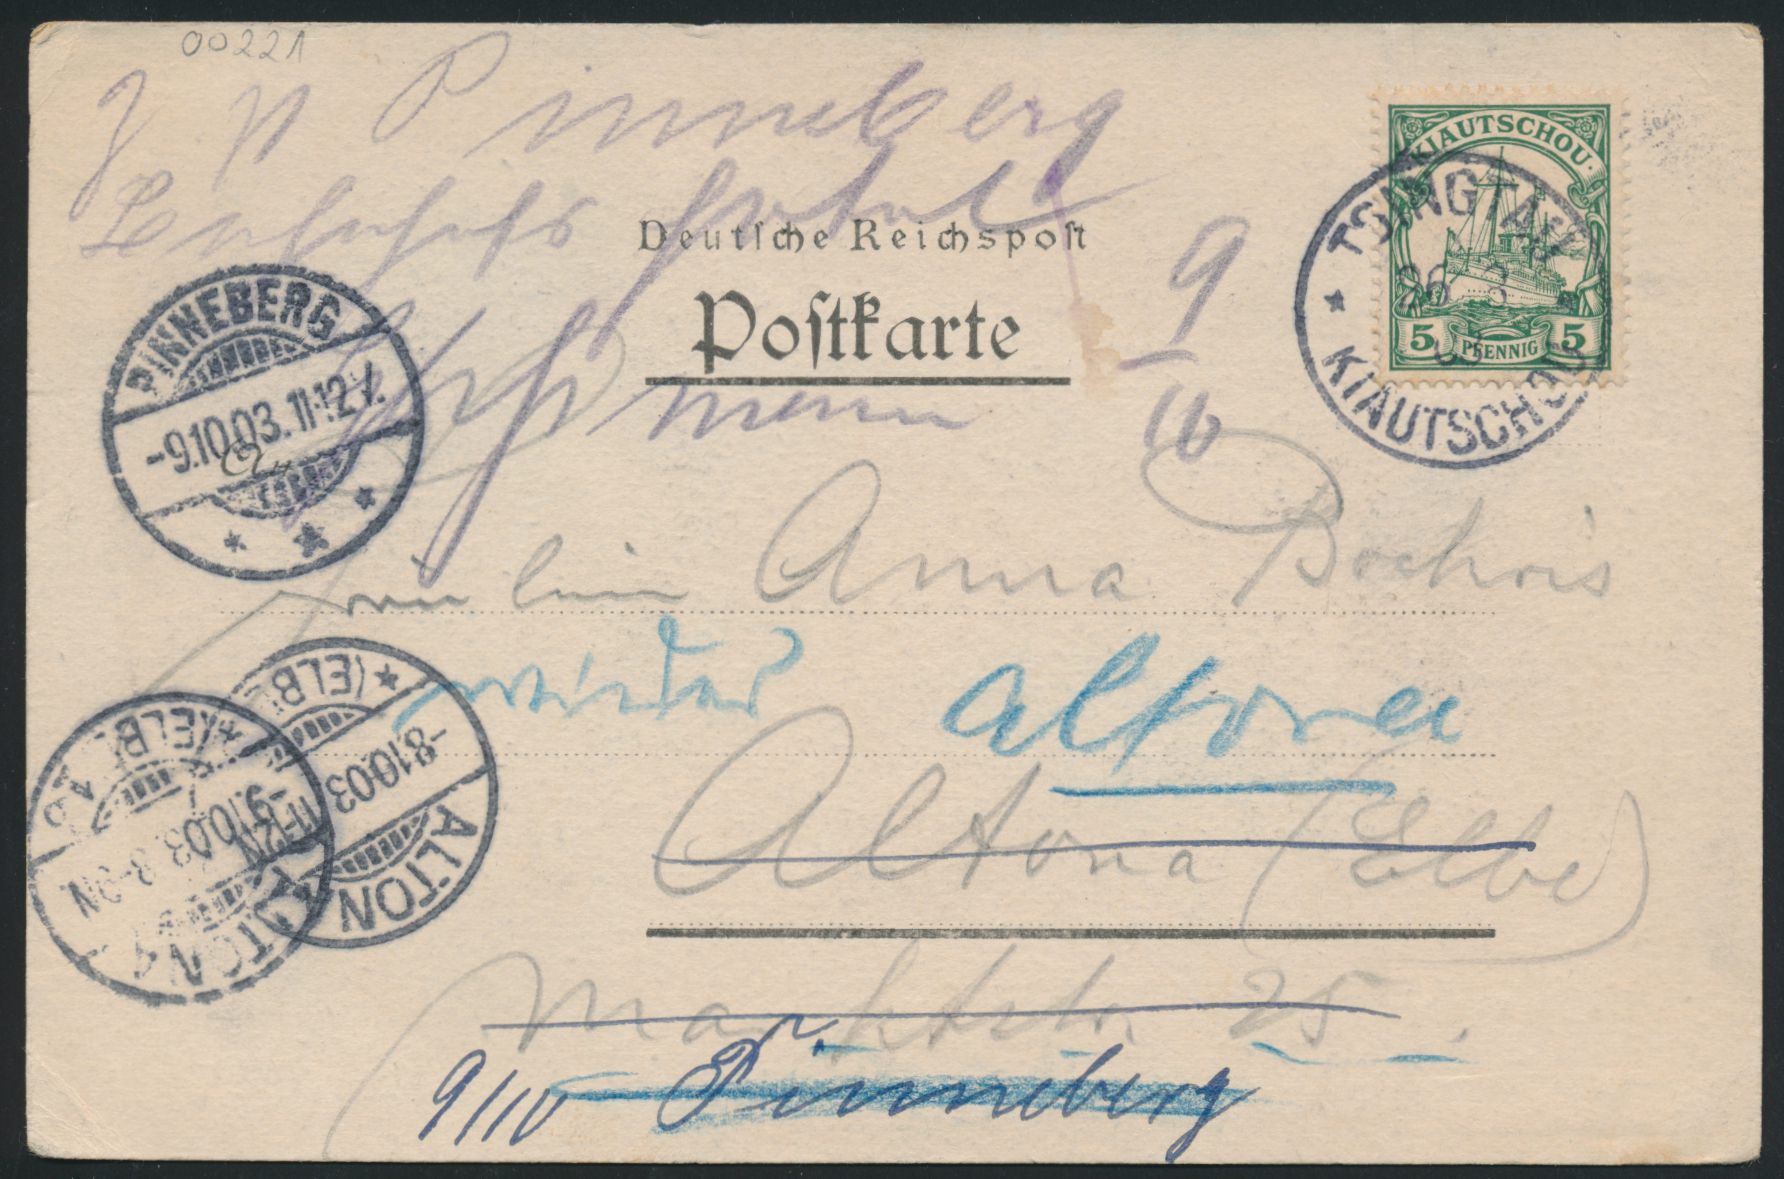 00221
Z. N. Pinneberg
Bahnhofs hotel
Deutsche Reichspost
Postkarte
9
10
KIAUTSCHOU
5 PFENNIG 5
TSINGTAU
26
03
KIAUTSCHOU
PINNEBERG
-9.10.03. 11-12V.
Anna
wieder Altona
Altona (Elbe)
Marktstr. 25.
9/10 Pinneberg
ALTONA
(ELBE)
-8.10.03
11-12N
ALTONA
(ELBE)
-9.10.03. 8-9N